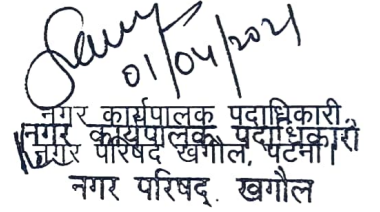 01/04/2021
नगर कार्यपालक पदाधिकारी
नगर कार्यपालक पदाधिकारी
नगर परिषद खगौल, पटना।
नगर परिषद् खगौल